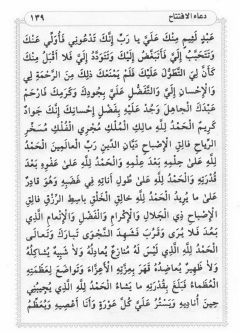 ١٣٩ دعاء الافتتاح
عَبْدٍ لَئِيمٍ مِنْكَ عَلَيَّ يا رَبِّ إِنَّكَ تَدْعُونِي فَأُوَلِّي عَنْكَ
وَتَتَحَبَّبُ إِلَيَّ فَأَتَبَغَّضُ إِلَيْكَ وَتَتَوَدَّدُ إِلَيَّ فَلا أَقْبَلُ مِنْكَ
كَأَنَّ لِيَ التَّطَوُّلَ عَلَيْكَ فَلَمْ يَمْنَعْكَ ذلِكَ مِنَ الرَّحْمَةِ لِي
وَالإِحْسانِ إِلَيَّ وَالتَّفَضُّلِ عَلَيَّ بِجُودِكَ وَكَرَمِكَ فَارْحَمْ
عَبْدَكَ الْجاهِلَ وَجُدْ عَلَيْهِ بِفَضْلِ إِحْسانِكَ إِنَّكَ جَوادٌ
كَرِيمٌ الْحَمْدُ لِلَّهِ مالِكِ الْمُلْكِ مُجْرِي الْفُلْكِ مُسَخِّرِ
الرِّياحِ فالِقِ الإِصْباحِ دَيَّانِ الدِّينِ رَبِّ الْعالَمِينَ الْحَمْدُ
لِلَّهِ عَلىٰ حِلْمِهِ بَعْدَ عِلْمِهِ وَالْحَمْدُ لِلَّهِ عَلىٰ عَفْوِهِ بَعْدَ
قُدْرَتِهِ وَالْحَمْدُ لِلَّهِ عَلىٰ طُولِ أَناتِهِ فِي غَضَبِهِ وَهُوَ قادِرٌ
عَلىٰ ما يُرِيدُ الْحَمْدُ لِلَّهِ خالِقِ الْخَلْقِ باسِطِ الرِّزْقِ فالِقِ
الإِصْباحِ ذِي الْجَلالِ وَالإِكْرامِ وَالْفَضْلِ وَالإِنْعامِ الَّذِي
بَعُدَ فَلا يُرىٰ وَقَرُبَ فَشَهِدَ النَّجْوىٰ تَبارَكَ وَتَعالىٰ
الْحَمْدُ لِلَّهِ الَّذِي لَيْسَ لَهُ مُنازِعٌ يُعادِلُهُ وَلا شَبِيهٌ يُشاكِلُهُ
وَلا ظَهِيرٌ يُعاضِدُهُ قَهَرَ بِعِزَّتِهِ الأَعِزَّاءَ وَتَواضَعَ لِعَظَمَتِهِ
الْعُظَماءُ فَبَلَغَ بِقُدْرَتِهِ ما يَشاءُ الْحَمْدُ لِلَّهِ الَّذِي يُجِيبُنِي
حِينَ أُنادِيهِ وَيَسْتُرُ عَلَيَّ كُلَّ عَوْرَةٍ وَأَنَا أَعْصِيهِ وَيُعَظِّمُ